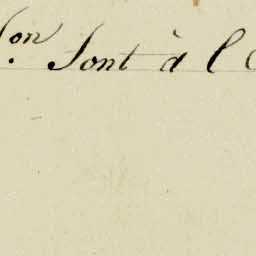 on. Sont à l